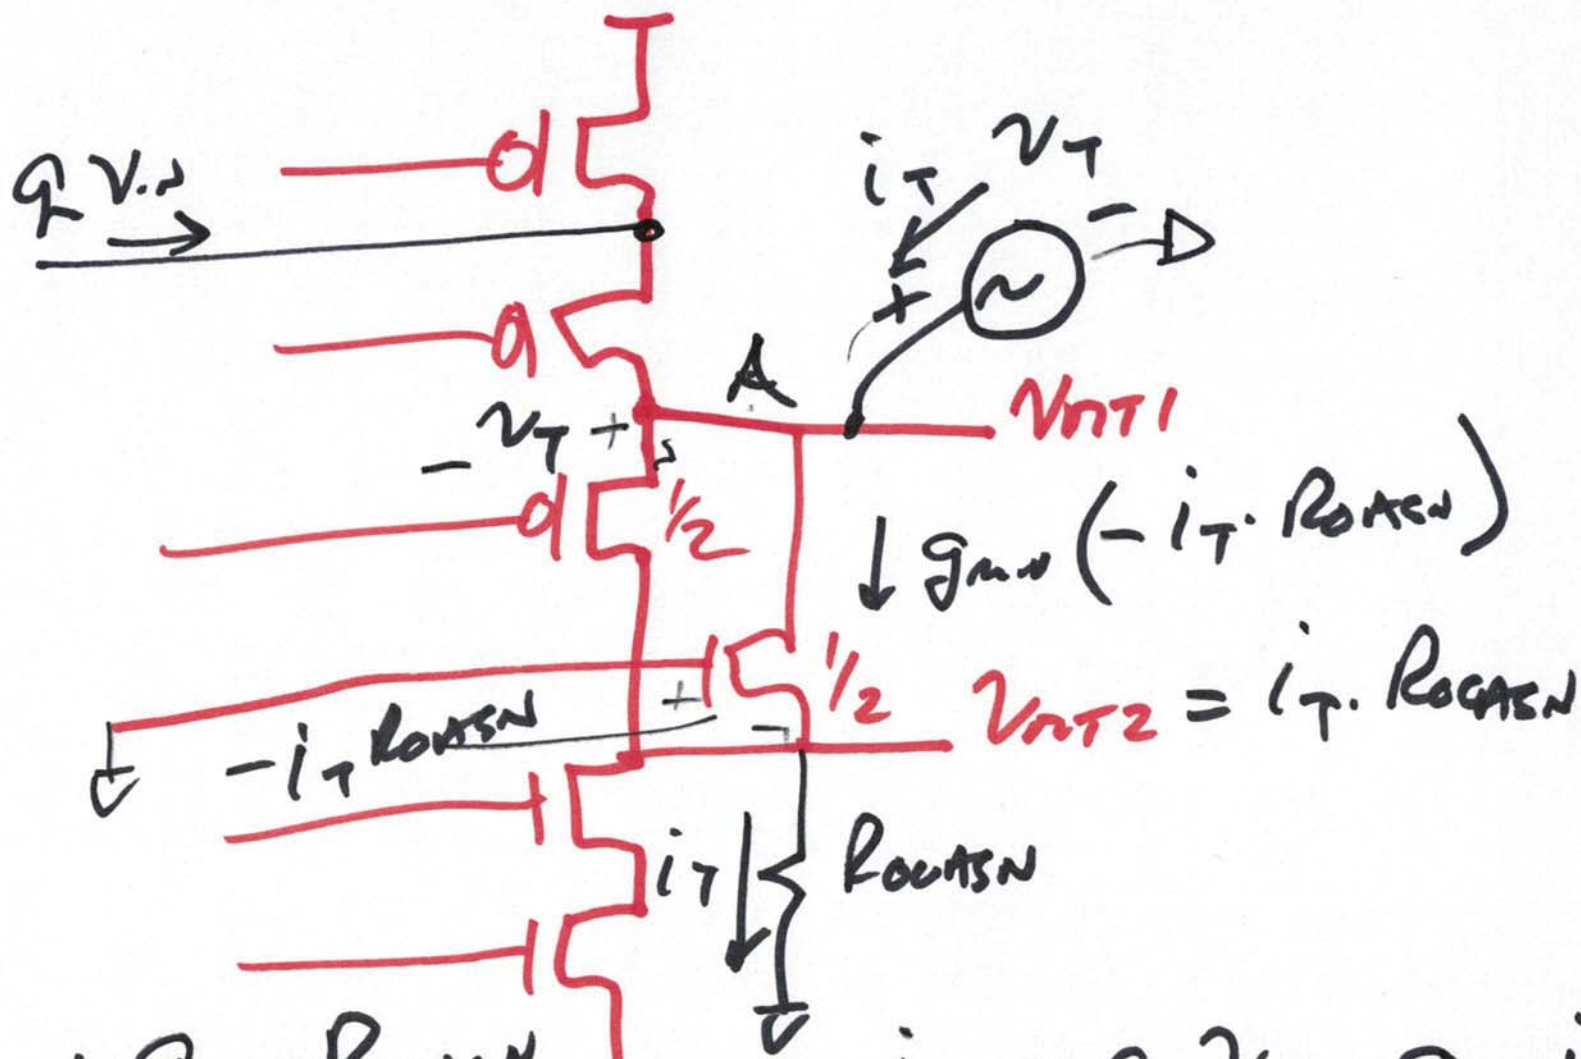 g Vin
iT vT
+ -
A
vT + Vout1
- s
1/2
gmn (- iT · Rocasn)
+ 1/2 Vout2 = iT · Rocasn
- iT Rocasn -
iT Rocasn